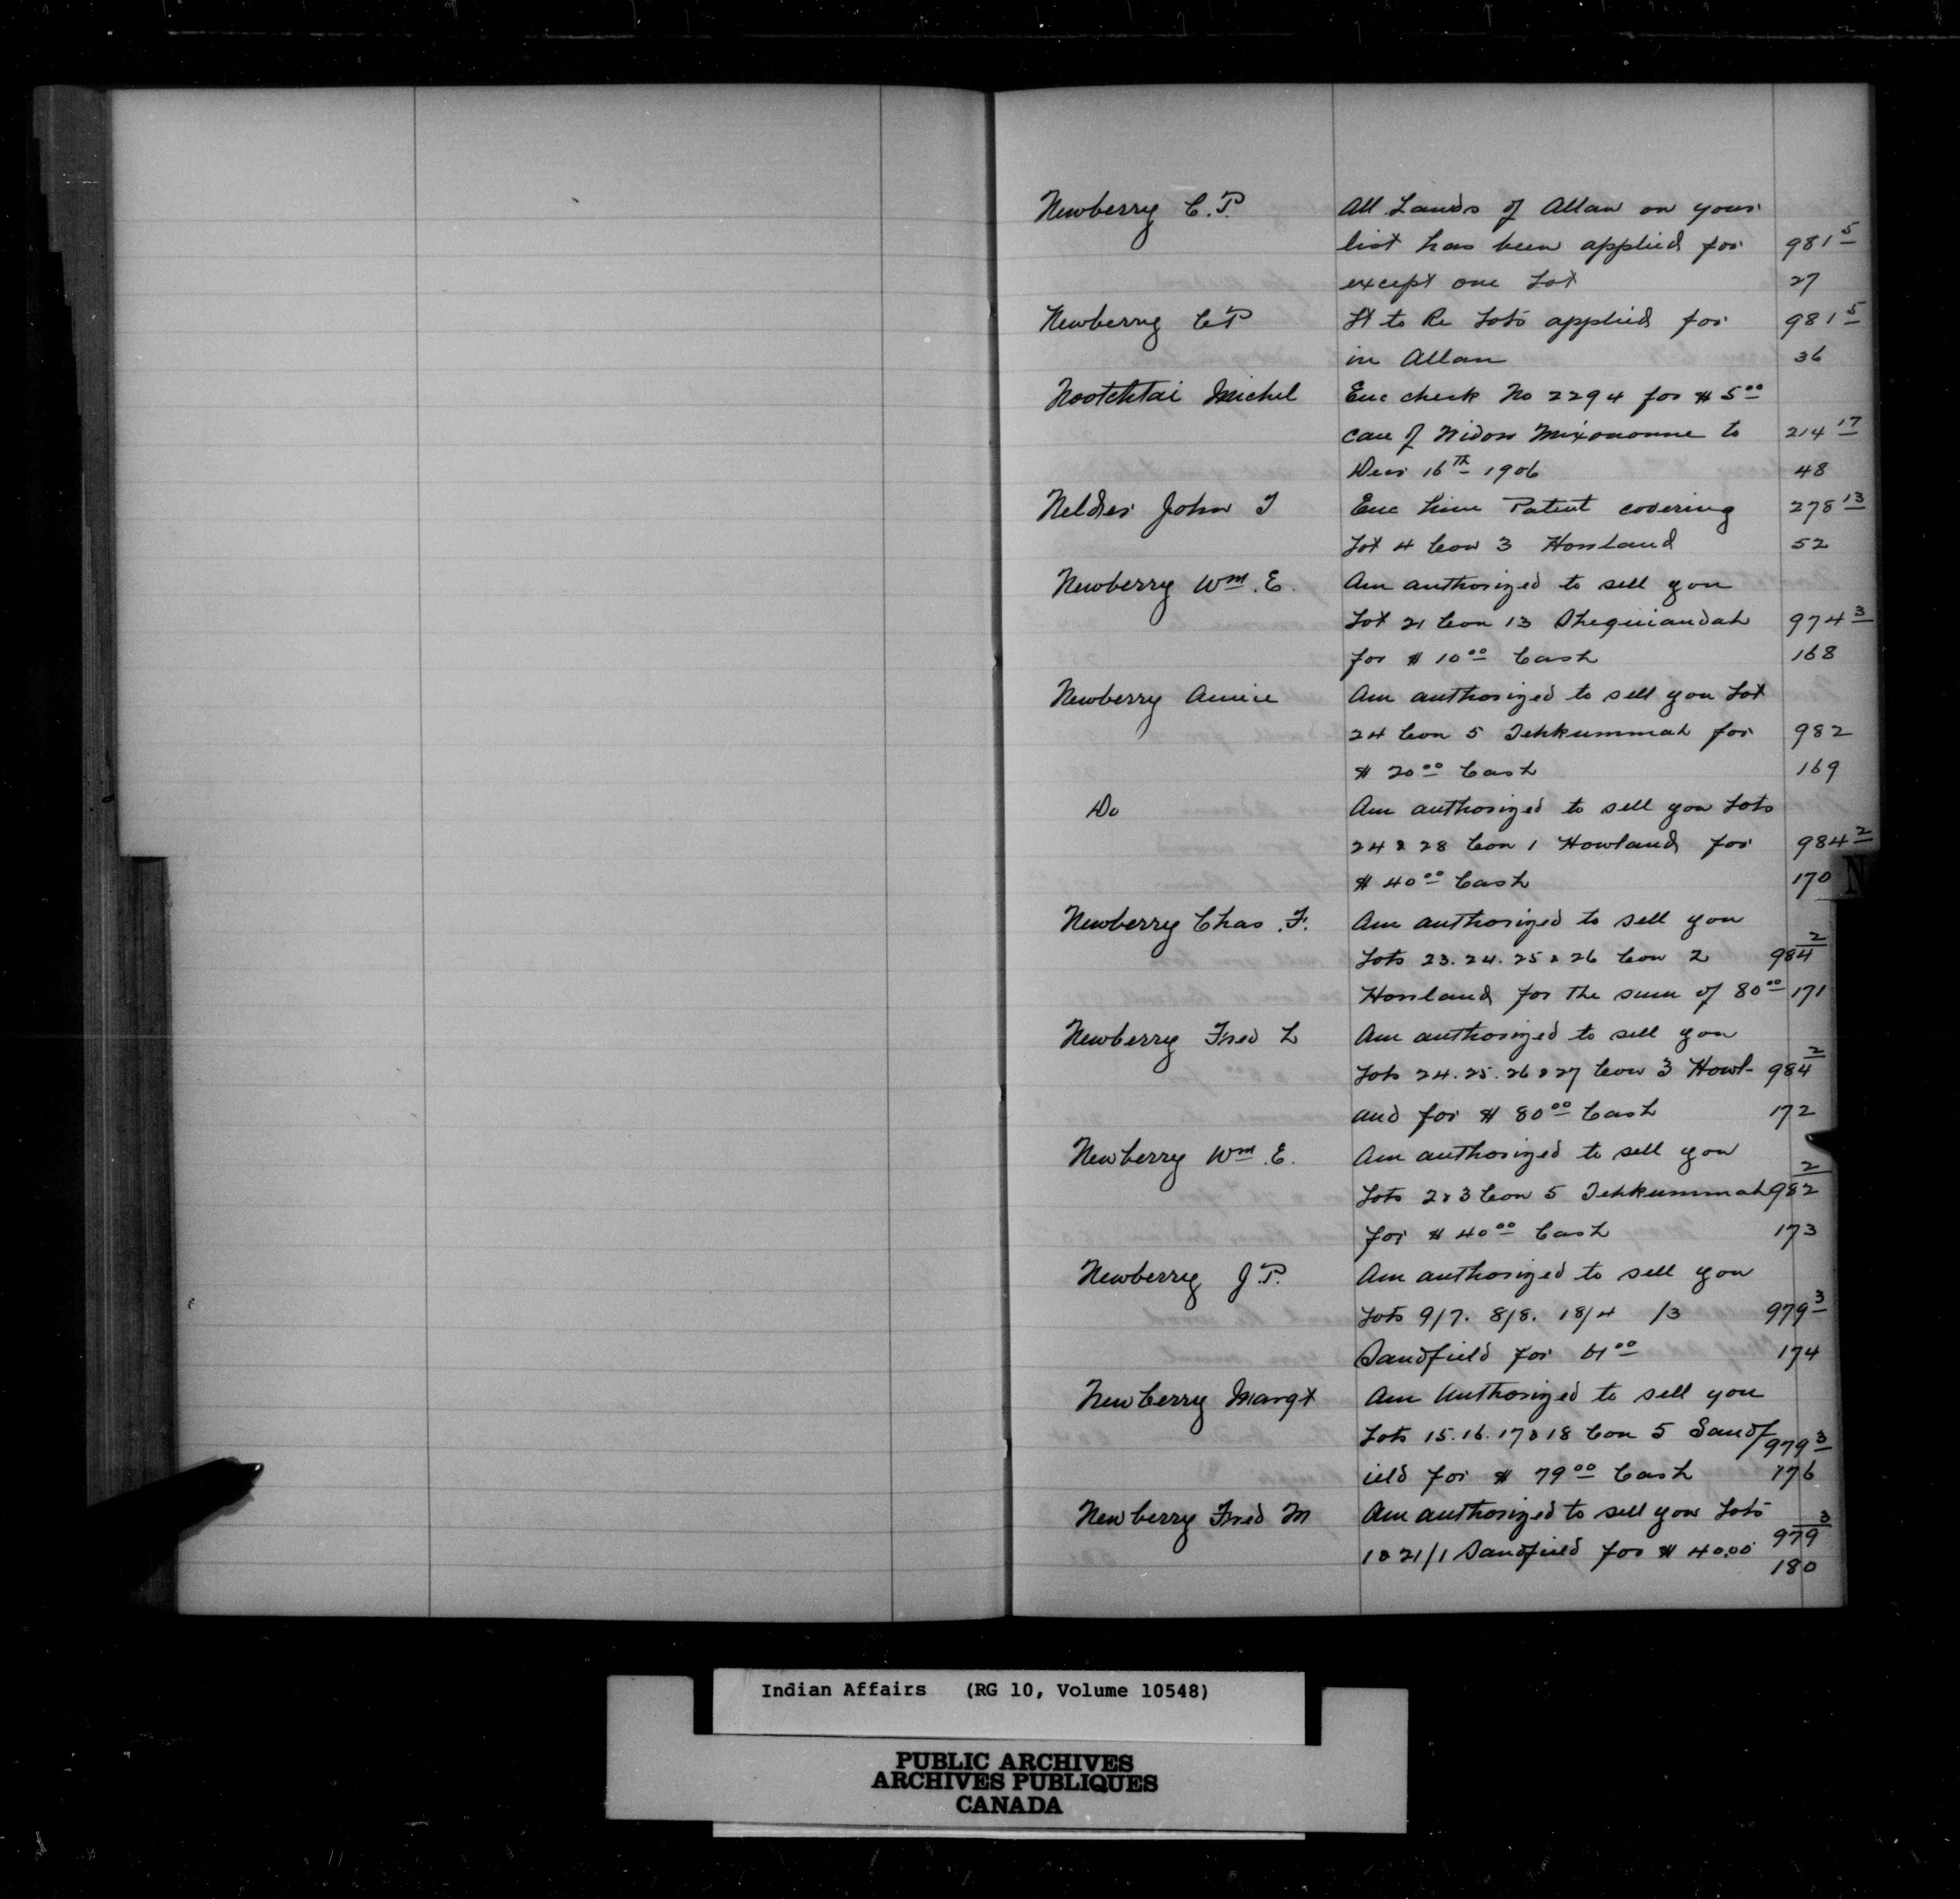 Newberry C.P. All Lands of Allan on your
list has been applied for 981 5
except one Lot 27
Newberry CP Lt to Re Lots applied for 981 5
in Allan 36
Nootchtai Michel Enc check No 2294 for $ 5 00
care of Widow Mixonomne to 214 17
Decr 16th 1906 48
Nelder John T Enc him Patent covering 278 13
Lot 4 Con 3 Howland 52
Newberry Wm. E. Am authorized to sell you
Lot 21 Con 13 Sheguiandah 974 3
for $ 10 00 Cash 168
Newberry Annie Am authorized to sell you Lot
24 Con 5 Tehkummah for 982
$ 20 00 Cash 169
Do Am authorized to sell you Lots
24 & 28 Con 1 Howland for 984 2
$ 40 00 Cash 170
N
Newberry Chas. F. Am authorized to sell you
Lots 23. 24. 25 & 26 Con 2 984 2
Howland for the sum of 80 00 171
Newberry Fred L Am authorized to sell you
Lots 24. 25. 26 & 27 Con 3 Howl- 984 2
and for $ 80 00 Cash 172
Newberry Wm. E. Am authorized to sell you
Lots 2 & 3 Con 5 Tehkummah 982 2
for $ 40 00 Cash 173
Newberry J.P. Am authorized to sell you
Lots 9/7. 8/8. 18/4 /3 979 3
Sandfield for 174
Newberry Margt Am Authorized to sell you
Lots 15. 16. 17 & 18 Con 5 Sandf 979 3
ield for $ 79 00 Cash 176
Newberry Fred M Am authorized to sell you Lots 979 3
1 & 21/1 Sandfield for $ 40.00 180
Indian Affairs (RG 10, Volume 10548)
PUBLIC ARCHIVES
ARCHIVES PUBLIQUES
CANADA